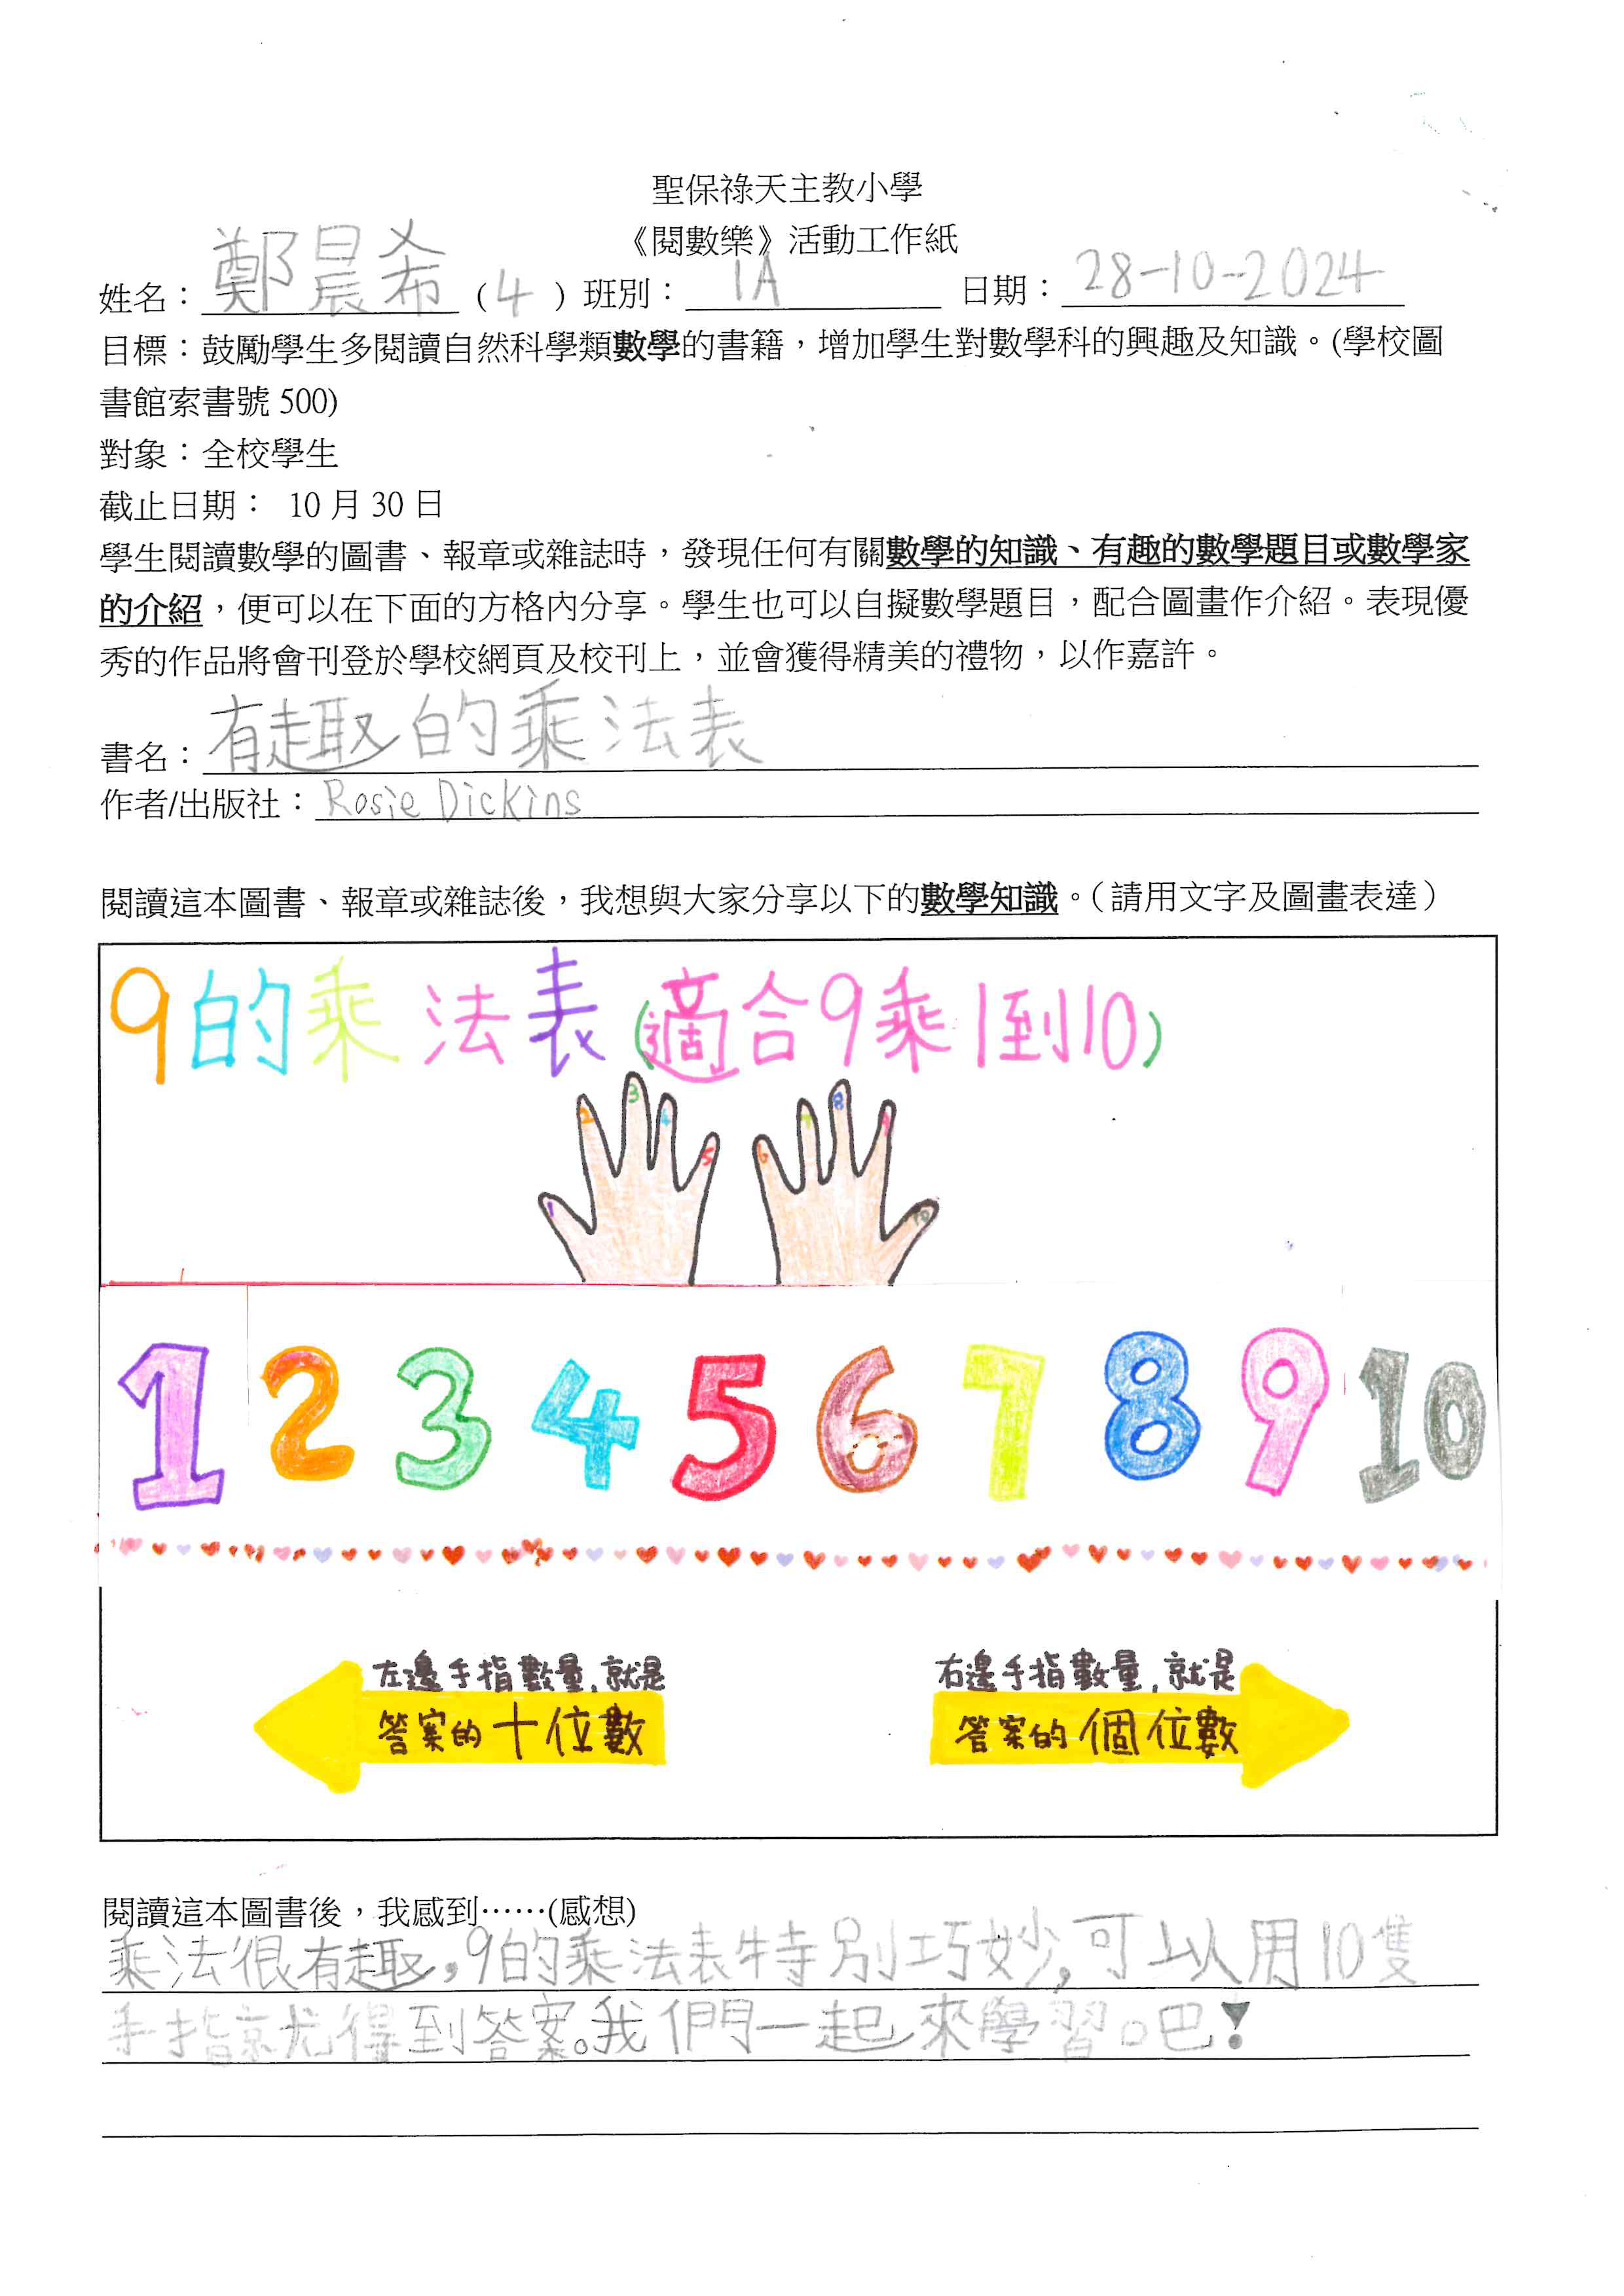 聖保祿天主教小學
《閱數樂》活動工作紙
姓名：鄭晨希（4）班別：1A 日期：28-10-2024
目標：鼓勵學生多閱讀自然科學類數學的書籍，增加學生對數學科的興趣及知識。(學校圖
書館索書號 500)
對象：全校學生
截止日期： 10 月 30 日
學生閱讀數學的圖書、報章或雜誌時，發現任何有關數學的知識、有趣的數學題目或數學家
的介紹，便可以在下面的方格內分享。學生也可以自擬數學題目，配合圖畫作介紹。表現優
秀的作品將會刊登於學校網頁及校刊上，並會獲得精美的禮物，以作嘉許。
書名：有趣的乘法表
作者/出版社：Rosie Dickins
閱讀這本圖書、報章或雜誌後，我想與大家分享以下的數學知識。（請用文字及圖畫表達）
9的乘法表(適合9乘1到10)
1 2 3 4 5 6 7 8 9 10
1 2 3 4 5 6 7 8 9 10
左邊手指數量，就是
答案的十位數
右邊手指數量，就是
答案的個位數
閱讀這本圖書後，我感到⋯⋯(感想)
乘法很有趣，9的乘法表特別巧妙，可以用10隻
手指就得到答案。我們一起來學習。吧！